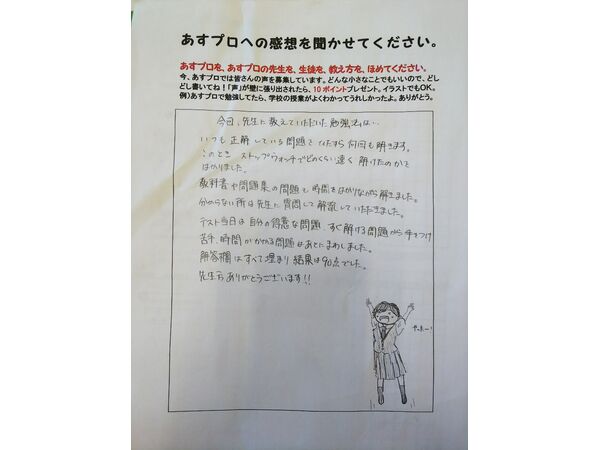 あすプロへの感想を聞かせてください。
あすプロを、あすプロの先生を、生徒を、教え方を、ほめてください。
今、あすプロでは皆さんの声を募集しています。どんな小さなことでもいいので、どし
どし書いてね！「声」が壁に張り出されたら、10ポイントプレゼント。イラストでもOK。
例）あすプロで勉強してたら、学校の授業がよくわかってうれしかったよ。ありがとう。
今回、先生に教えていただいた勉強法は…
いつも正解している問題をひたすら何回も解きます。
このとき ストップウォッチでどのくらい速く解けたのかを
はかりました。
教科書や問題集の問題を時間をはかりながら解きました。
分からない所は先生に質問して解説していただきました。
テスト当日は自分の得意な問題、すぐ解ける問題から手をつけ
苦手、時間がかかる問題はあとにまわしました。
解答欄はすべて埋まり結果は90点でした。
先生方ありがとうございます!!
やったー!